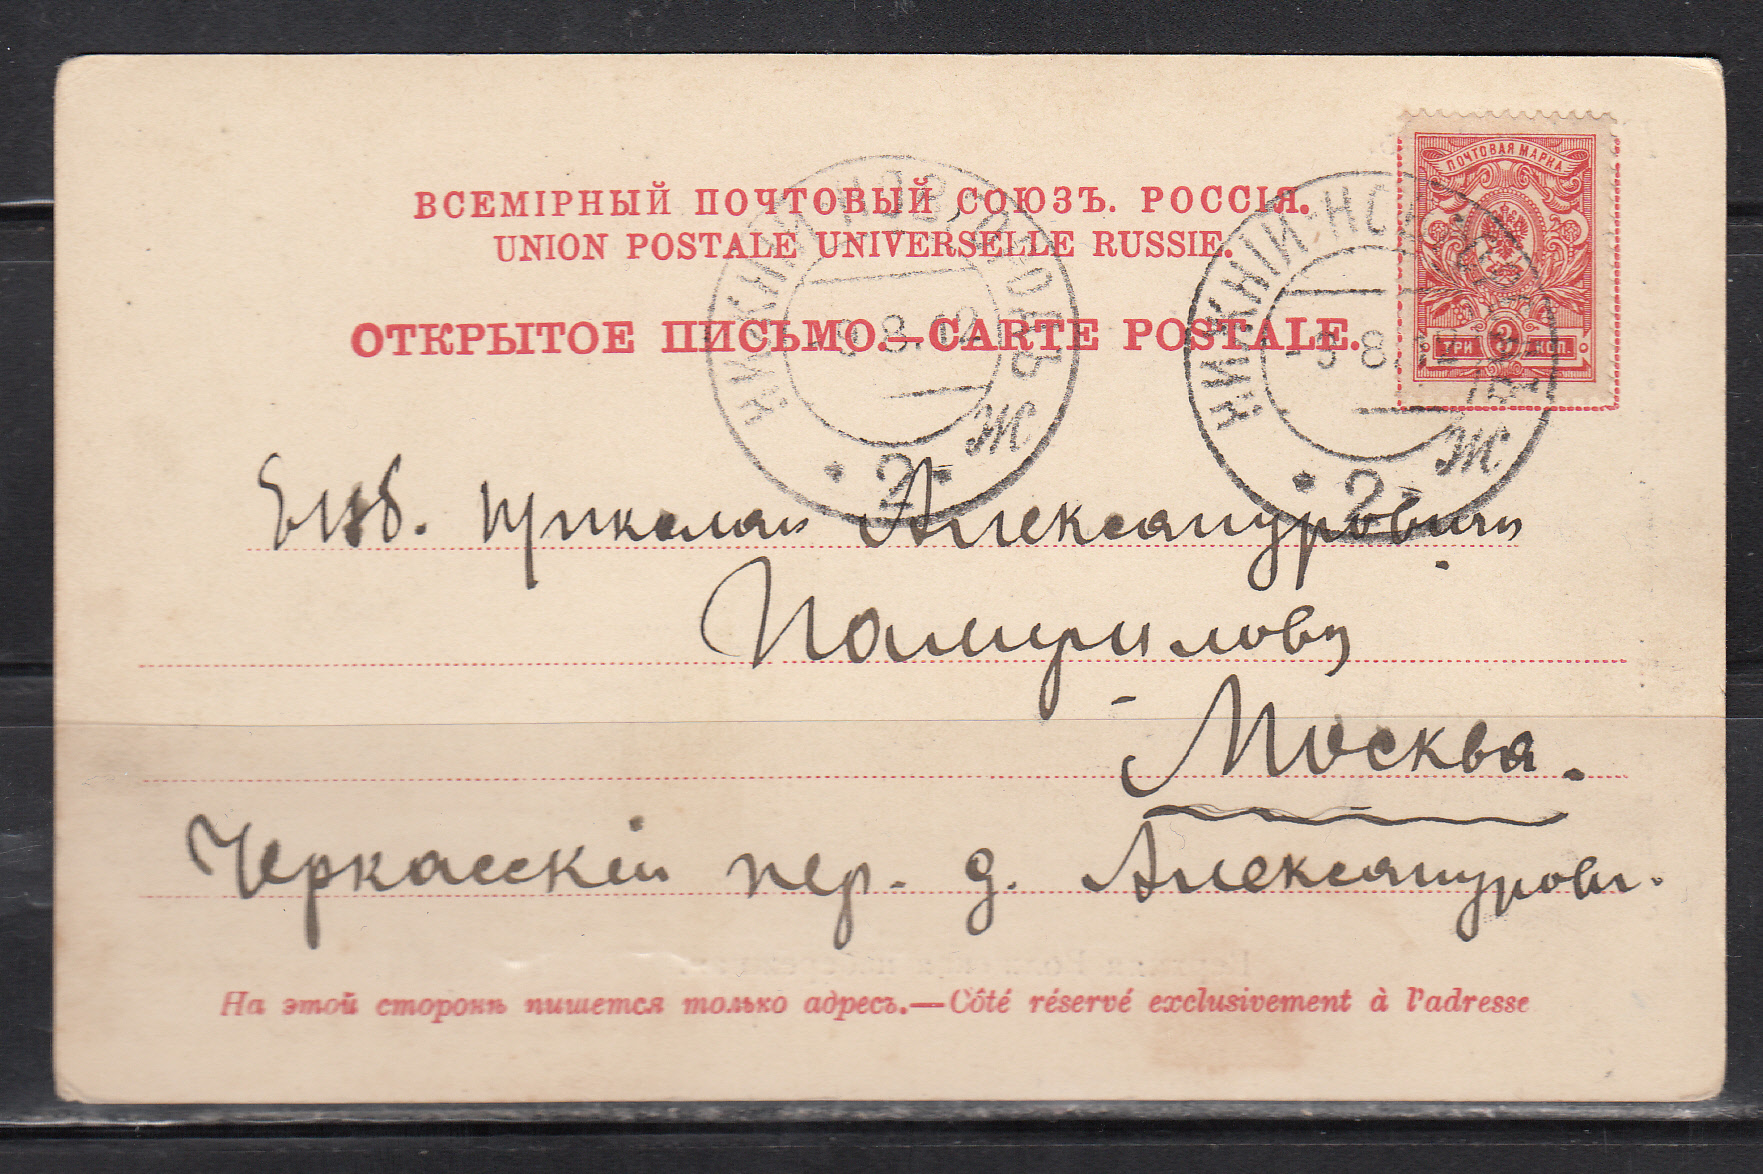 ВСЕМІРНЫЙ ПОЧТОВЫЙ СОЮЗЪ. РОССІЯ.
UNION POSTALE UNIVERSELLE RUSSIE.
ОТКРЫТОЕ ПИСЬМО.—CARTE POSTALE.
ПОЧТОВАЯ МАРКА
ТРИ 3 КОП.
НИЖНІЙ-НОВГОРОДЪ
8.12
Ж
2
НИЖНІЙ-НОВГОРОДЪ
8.12
Ж
2
Александровичу
Москва.
Черкасскій пер. д. Александров.
На этой сторонѣ пишется только адресъ.—Côté réservé exclusivement à l'adresse